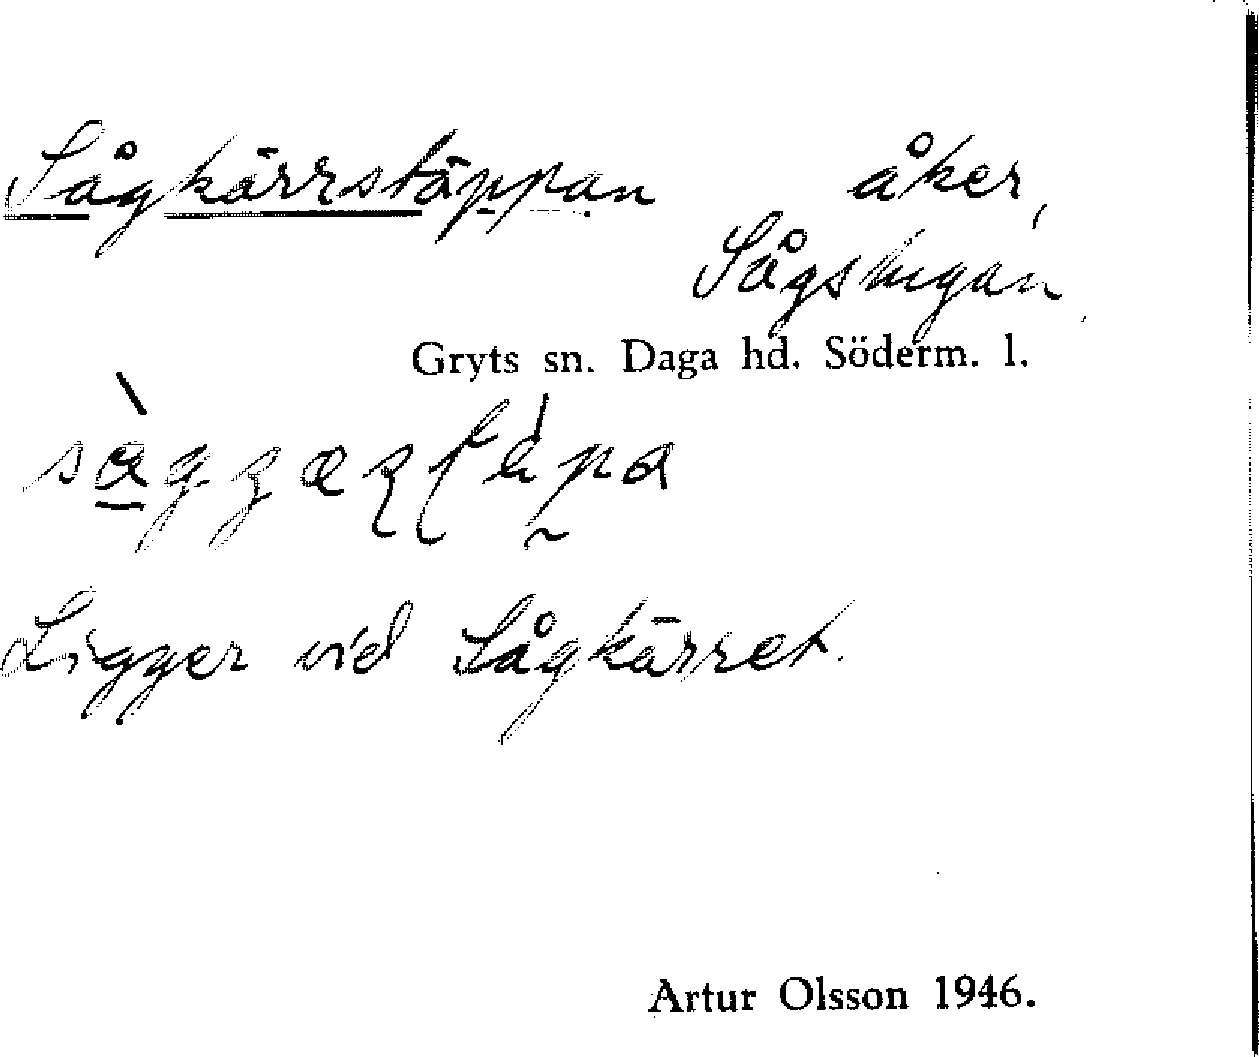 Sågkärrstäppan åker,
Sågstugan
Gryts sn. Daga hd. Söderm. l.
Ligger vid Sågkärret.
Artur Olsson 1946.